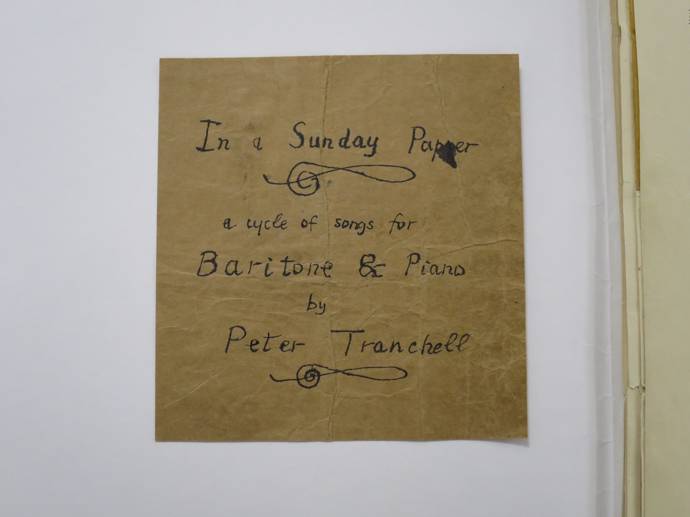 In a Sunday Papper
a cycle of songs for
Baritone & Piano
by
Peter Tranchell